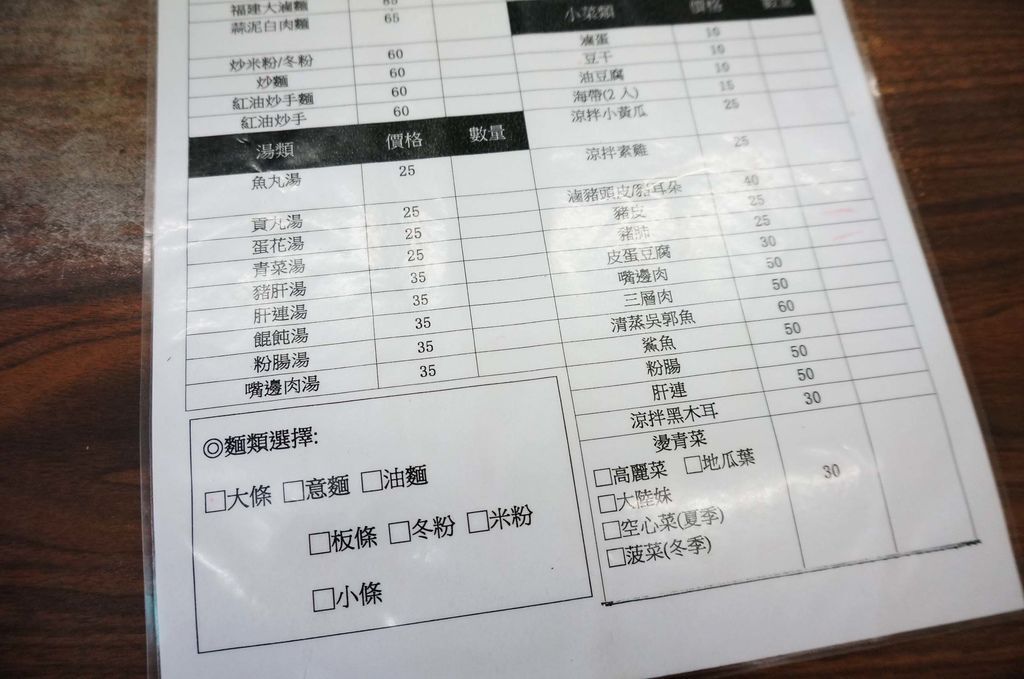 福建大滷麵 65
蒜泥白肉麵 65
炒米粉/冬粉 60
炒麵 60
紅油炒手麵 60
紅油炒手 60
湯類 價格 數量
魚丸湯 25
貢丸湯 25
蛋花湯 25
青菜湯 25
豬肝湯 35
肝連湯 35
餛飩湯 35
粉腸湯 35
嘴邊肉湯 35
◎麵類選擇:
□大條 □意麵 □油麵
□板條 □冬粉 □米粉
□小條
小菜類 價格 數量
滷蛋 10
豆干 10
油豆腐 10
海帶(2 入) 15
涼拌小黃瓜 25
涼拌素雞 25
滷豬頭皮/豬耳朵 40
豬皮 25
豬肺 25
皮蛋豆腐 30
嘴邊肉 50
三層肉 50
清蒸吳郭魚 60
鯊魚 50
粉腸 50
肝連 50
涼拌黑木耳 30
燙青菜
□高麗菜 □地瓜葉 30
□大陸妹
□空心菜(夏季)
□菠菜(冬季)